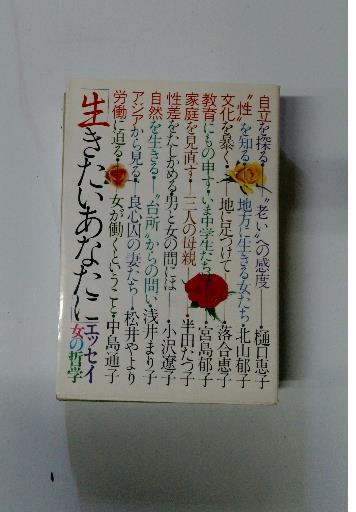 自立を探る・“老い”への感度・樋口恵子
“性”を知る・地方に生きる女たち・北山郁子
文化を暴く・地に足つけて・落合恵子
教育にもの申す・いま中学生たち・宮島郁子
家庭を見直す・三人の母親・半田たつ子
性差をたしかめる・男と女の間には・小沢遼子
自然を生きる・“台所”からの問い・浅井まり子
アジアから見る・良心囚の妻たち・松井やより
労働に迫る・女が働くということ・中島通子
「生きたいあなたに
エッセイ
女の哲学